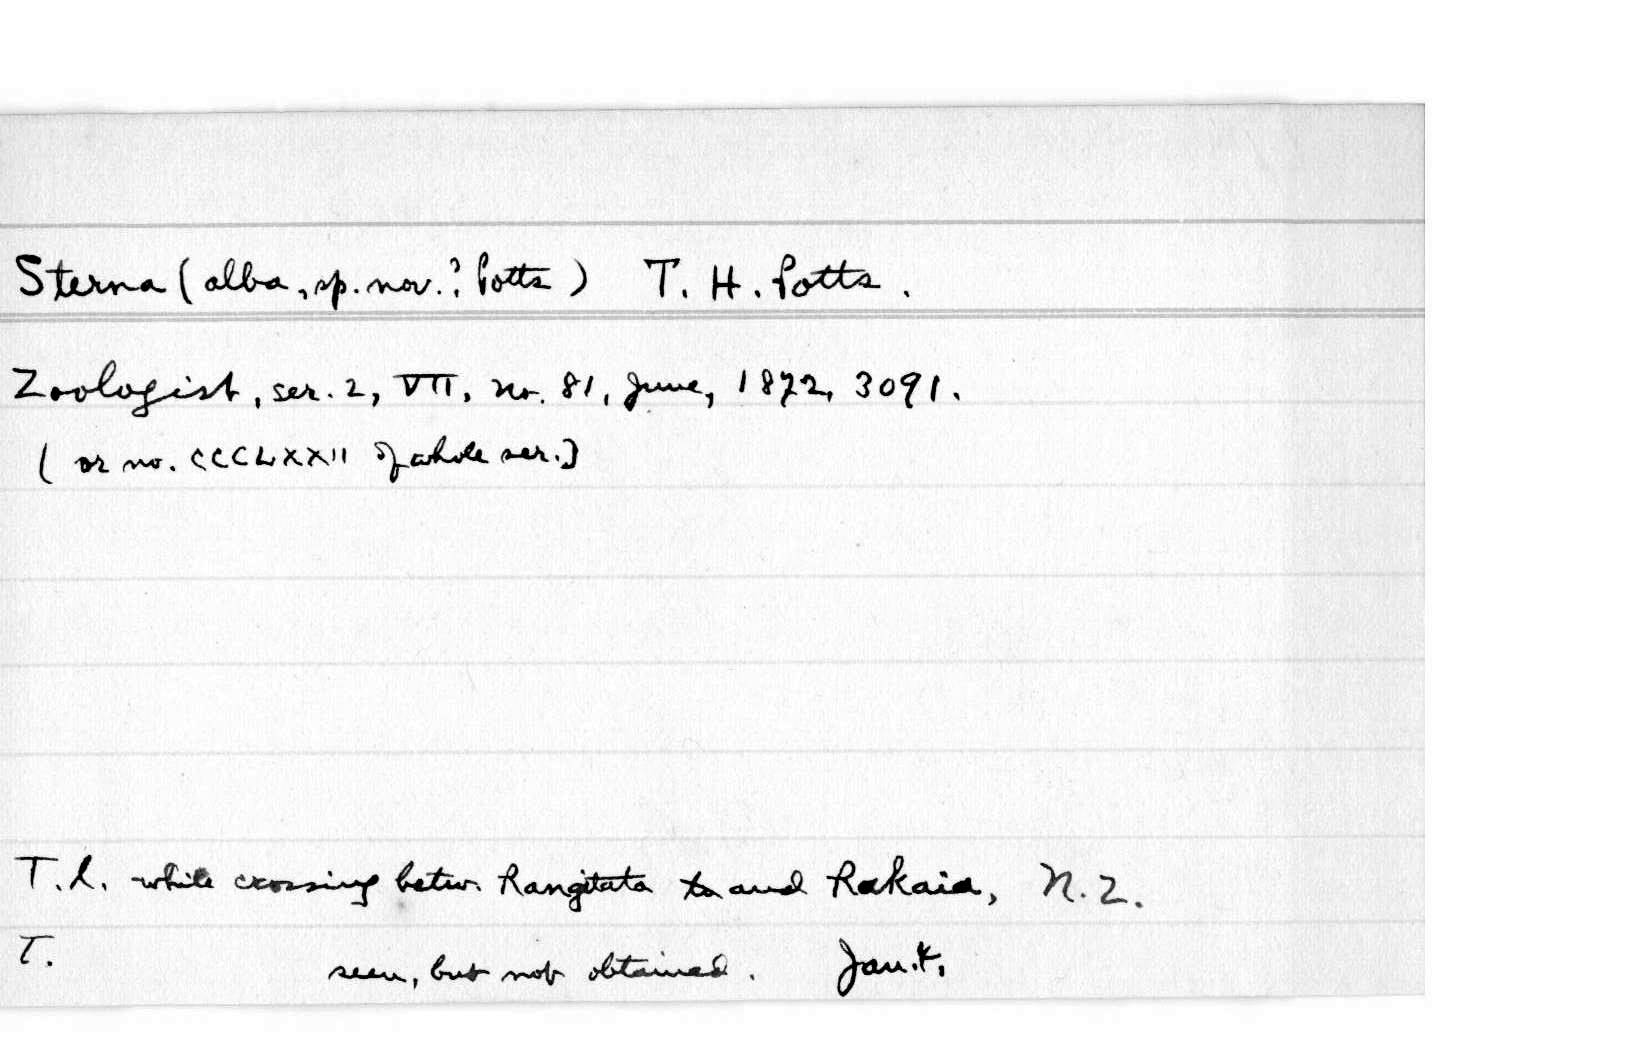 Sterna (alba, sp. nov.? Potts) T. H. Potts.
Zoologist, ser. 2, VII, no. 81, June, 1872, 3091.
( or no. CCCLXXII of whole ser.]
T.l. while crossing betw. Rangitata to and Rakaia, N.Z.
T. seen, but not obtained. Jan.